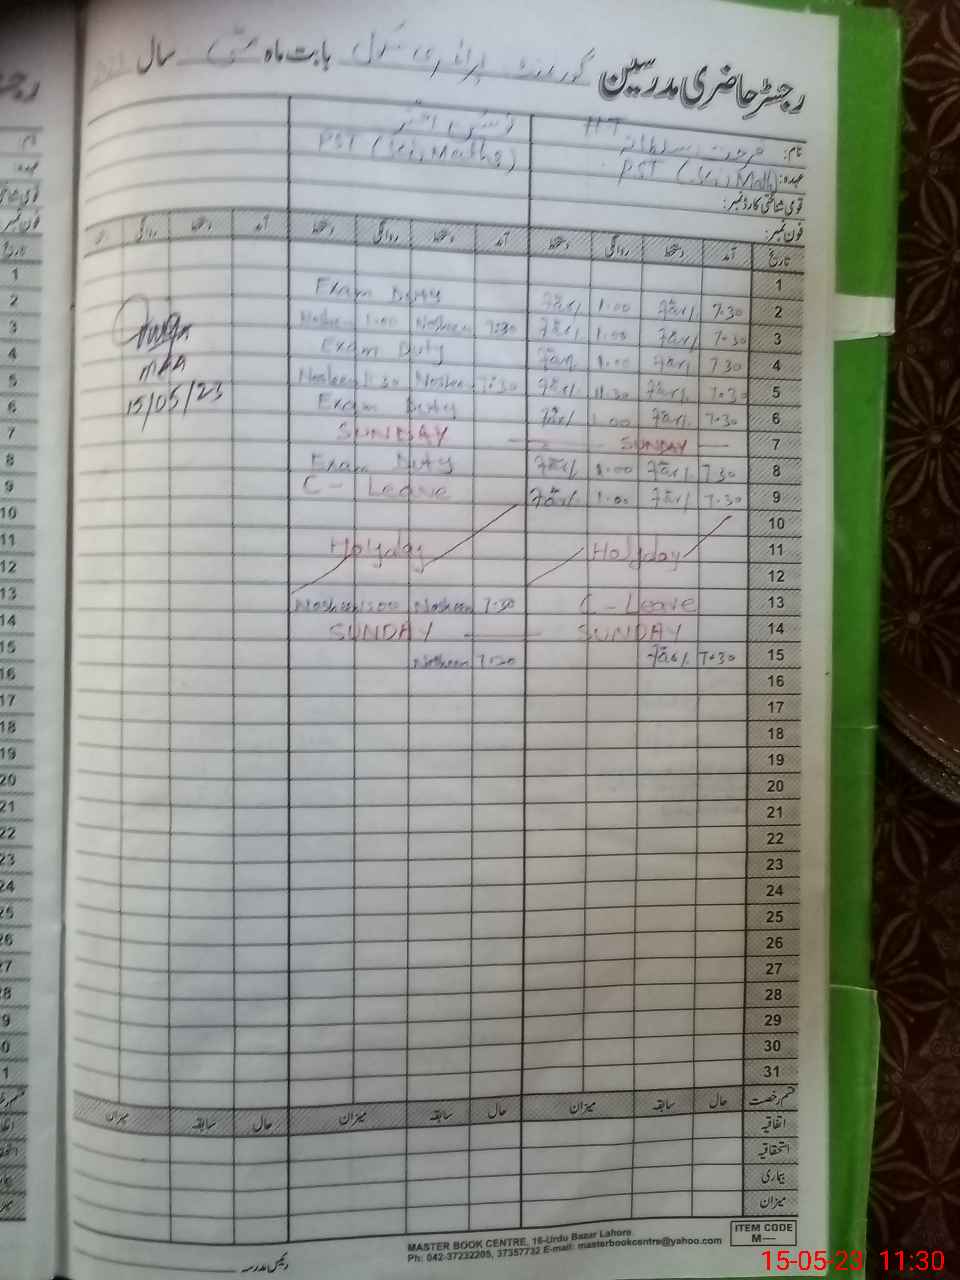 رجسٹر حاضری مدرسین گورنمنٹ پرائمری سکول بابت ماہ مئی سال
HT
نام: فرحت سلطانہ
عہدہ: PST (Sci, Math) PST (Sci, Maths)
قومی شناختی کارڈ نمبر:
فون نمبر:
تاریخ آمد دستخط روانگی دستخط آمد دستخط روانگی دستخط آمد دستخط روانگی
1
2 7.30 1.00 Exam Duty
3 7.30 1.00 7:30 Nosheen 1.00 Noshe
4 7.30 1.00 Exam Duty
5 7.30 11.30 7:30 Nosheen 11:30 Nosheen
6 7.30 1.00 Exam Duty
7 SUNDAY SUNDAY
8 7.30 1.00 Exam Duty
9 7.30 1.00 C - Leave
10
11 Holyday Holyday
12
13 C - Leave 7.30 Nosheen 1:00 Nosheen
14 SUNDAY SUNDAY
15 7.30 7:30 Nosheen
16
17
18
19
20
21
22
23
24
25
26
27
28
29
30
31
MEA
15/05/23
قسم رخصت حال سابقہ میزان حال سابقہ میزان حال سابقہ میزان
اتفاقیہ
استحقاقیہ
بیماری
میزان
رئیس مدرسہ
MASTER BOOK CENTRE, 16-Urdu Bazar Lahore.
Ph: 042-37232205, 37357732 E-mail: masterbookcentre@yahoo.com
ITEM CODE
M—
15-05-23 11:30